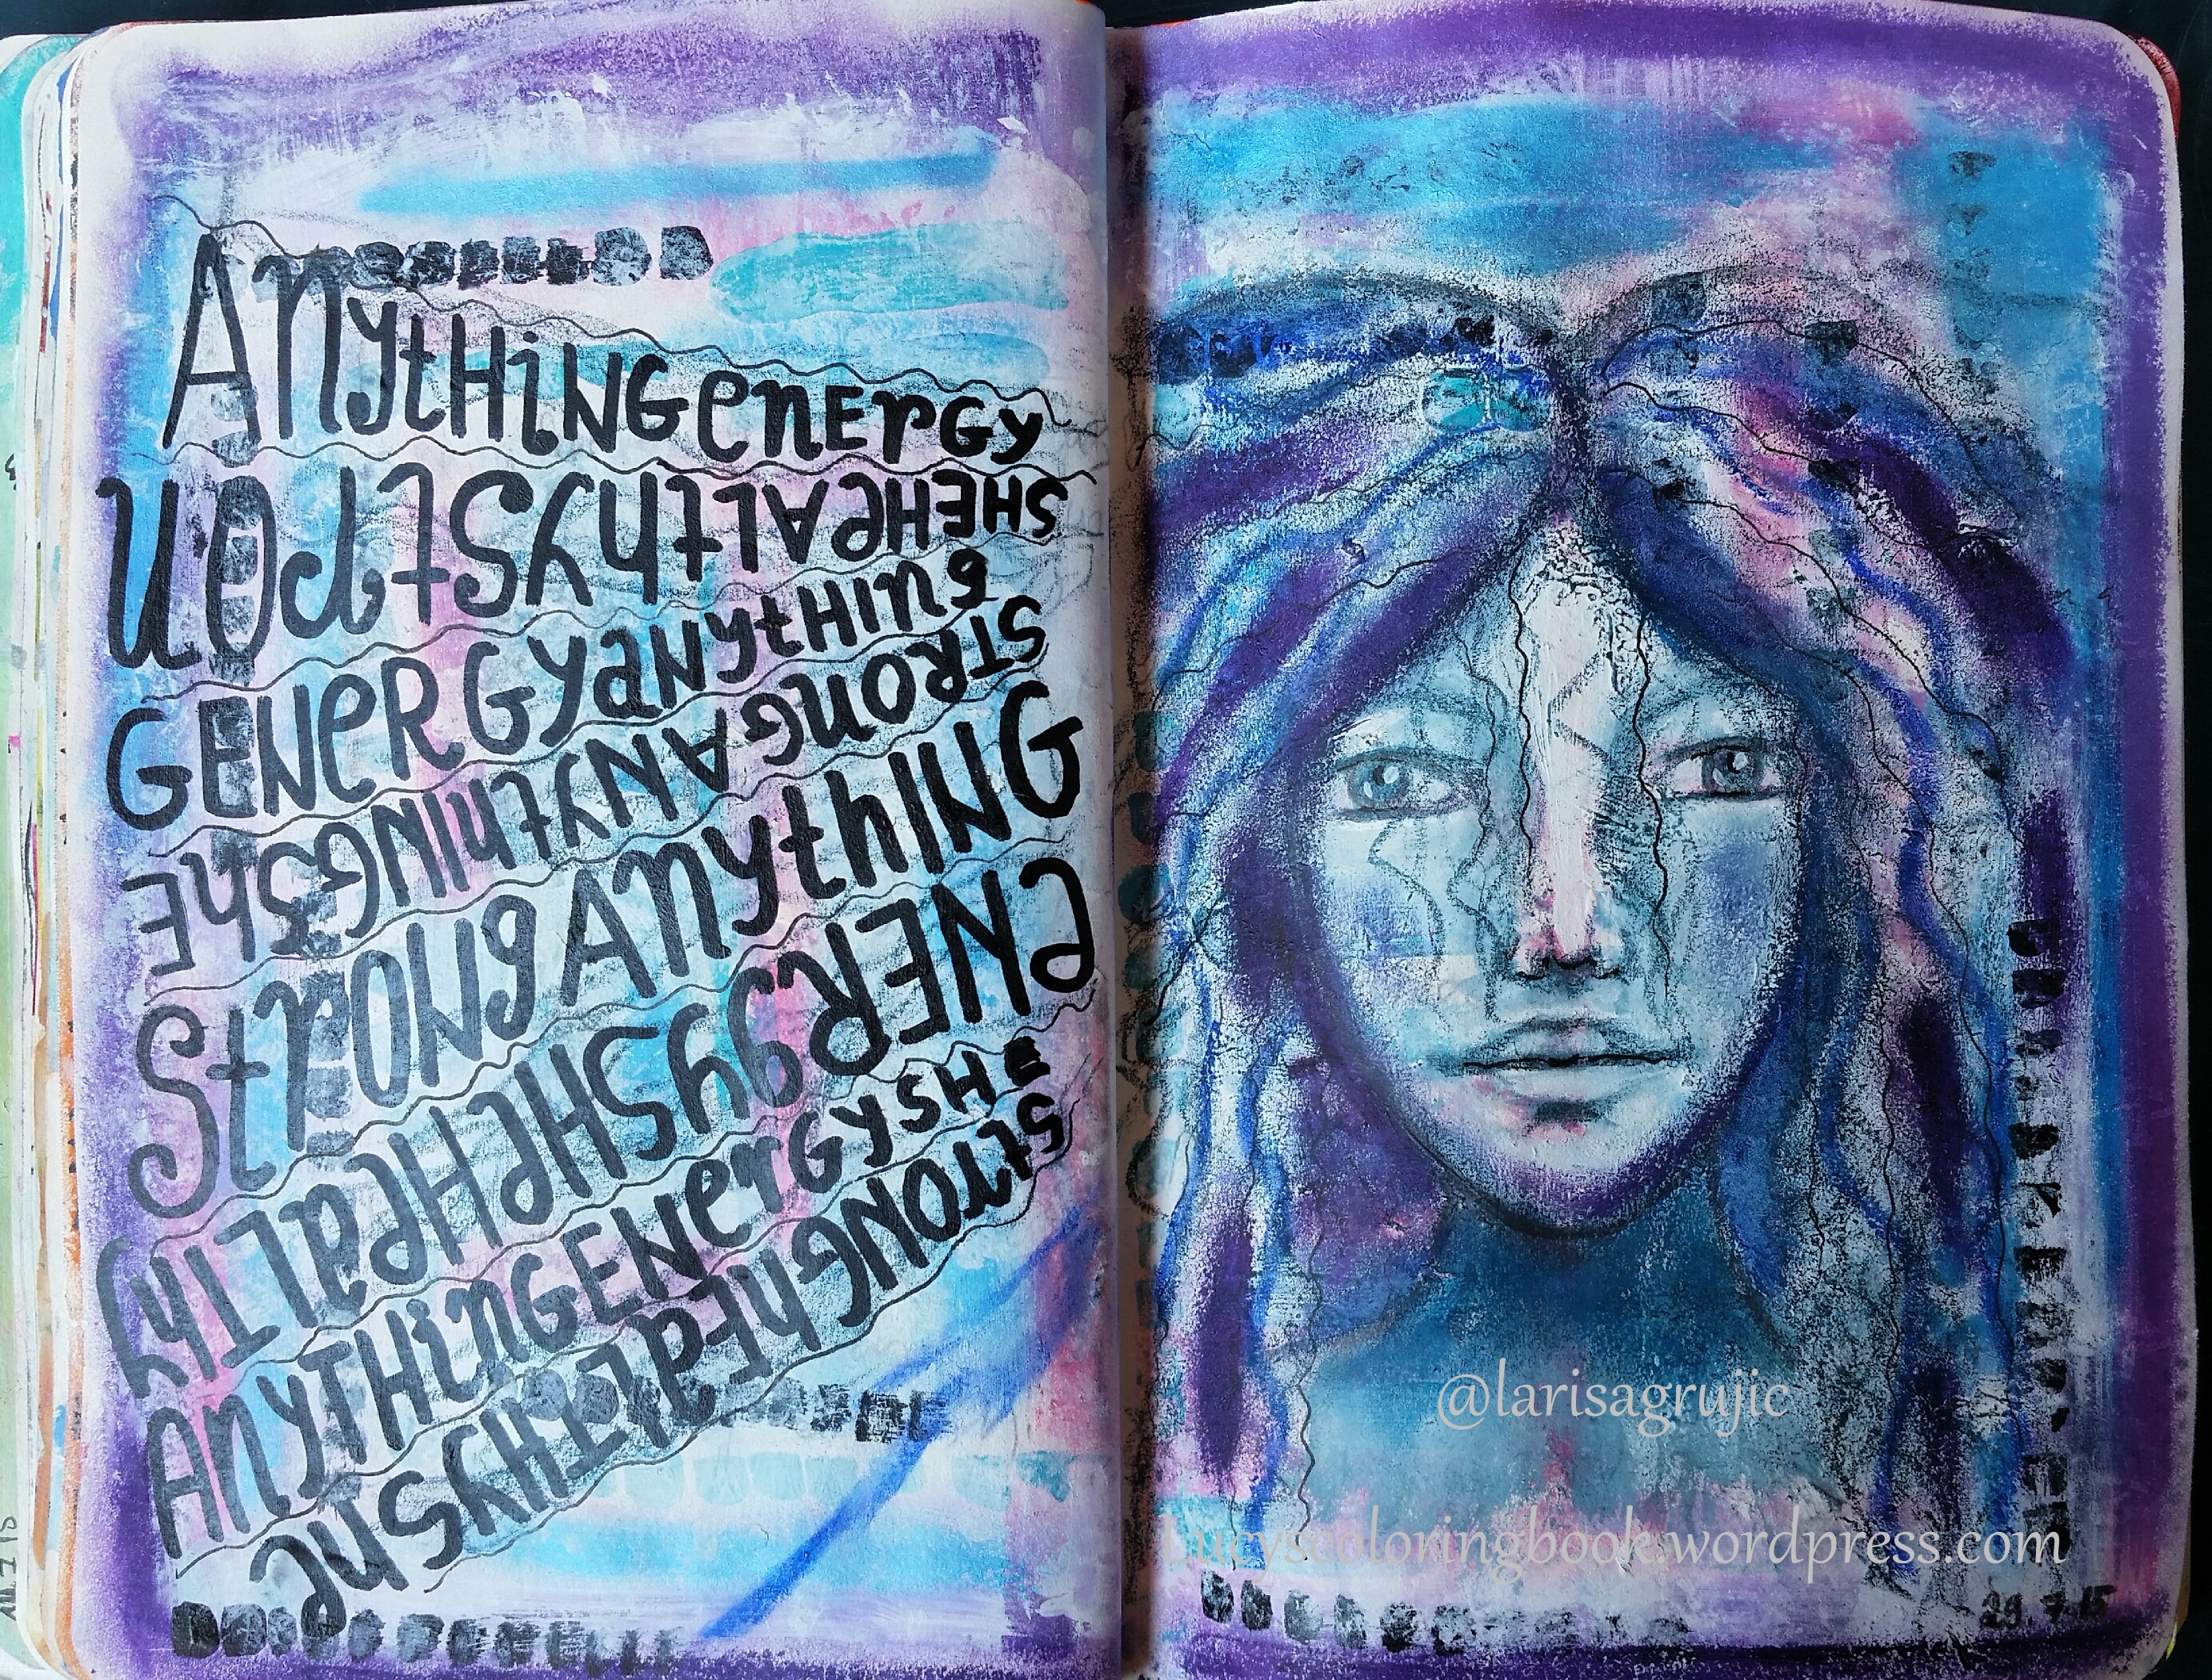 AnytHiNGenErGy
SHEHeALthyStrOn
GENeRGyaNytHinG
STRONGANythINGShE
StrONgAnythING
eNERgySHeHeaLThy
AnyTHinGENerGySH
StrONGhEaLTHyShe
@larisagrujic
Lucyscoloringbook.wordpress.com
29.7.15